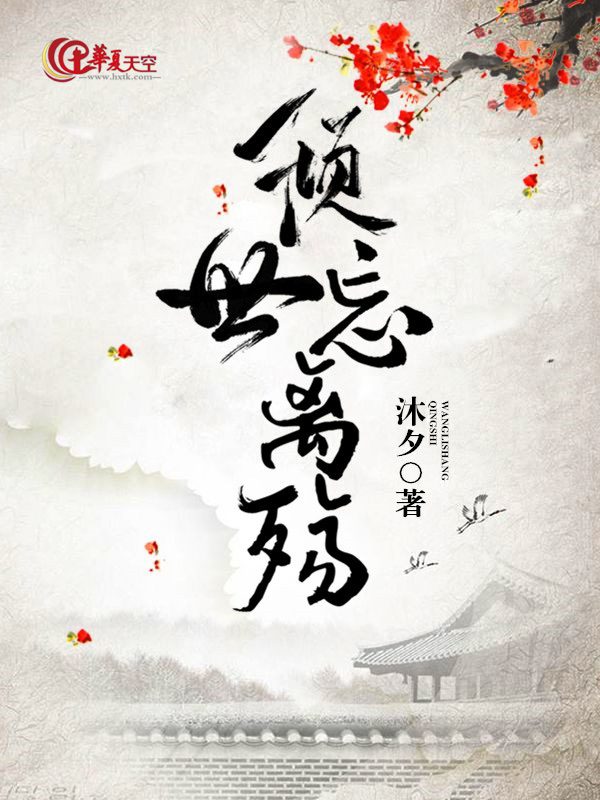 華夏天空
—www.hxtk.com—
倾世忘离殇
QINGSHI
WANGLISHANG
沐夕○著